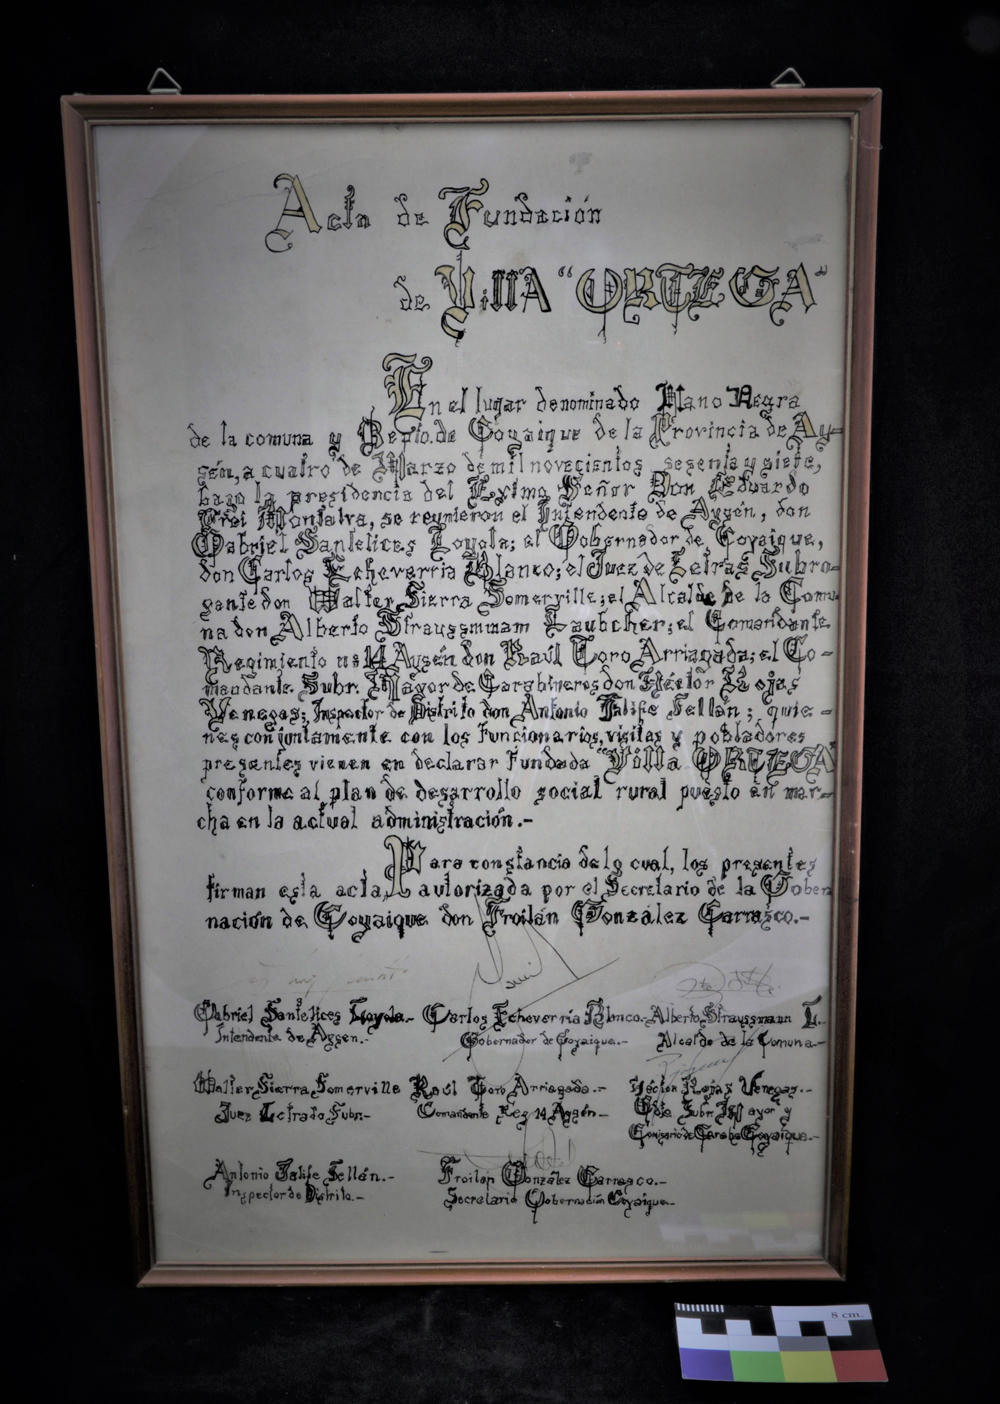 Acta de Fundación
de Villa "ORTEGA"
En el lugar denominado Mano Negra
de la comuna y Depto. de Coyaique de la Provincia de Ay-
sén, a cuatro de Marzo de mil novecientos sesenta y siete,
bajo la presidencia del Eximo Señor Don Eduardo
Frei Montalva, se reunieron el Intendente de Aysén, don
Gabriel Santelices Loyola; el Gobernador de Coyaique,
don Carlos Echeverria Blanco; el Juez de Letras Subro-
gante don Walter Sierra Somerville; el Alcalde de la Comu-
na don Alberto Straussmmam Laubcher; el Comandante
Regimiento nº 14 Aysén don Raúl Toro Arriagada; el Co-
mandante Subr. Mayor de Carabineros don Héctor Rojas
Venegas; Inspector de Distrito don Antonio Jalife Fellán; quie-
nes conjuntamente con los funcionarios, visitas y pobladores
presentes vienen en declarar Fundada "Villa ORTEGA"
conforme al plan de desarrollo social rural puesto en mar-
cha en la actual administración.-
Para constancia de lo cual, los presentes
firman esta acta, autorizada por el Secretario de la Gober
nación de Coyaique don Froilán González Carrasco.-
Gabriel Santelices Loyola.- Carlos Echeverría Blnco.- Alberto Straussmann L.-
Intendente de Aysen.- Gobernador de Coyaique.- Alcalde de la Comuna.-
Walter Sierra Somerville Raúl Toro Arriagada.- Héctor Rojas Venegas.-
Juez Letrado Subr.- Comandante Reg 14 Aysén.- Subr. Mayor y
Comisario de Carabs Coyaique.-
Antonio Jalife Fellán.- Froilán González Carrasco.-
Inspector de Distrito.- Secretario Gobernación Coyaique.-
8 cm.